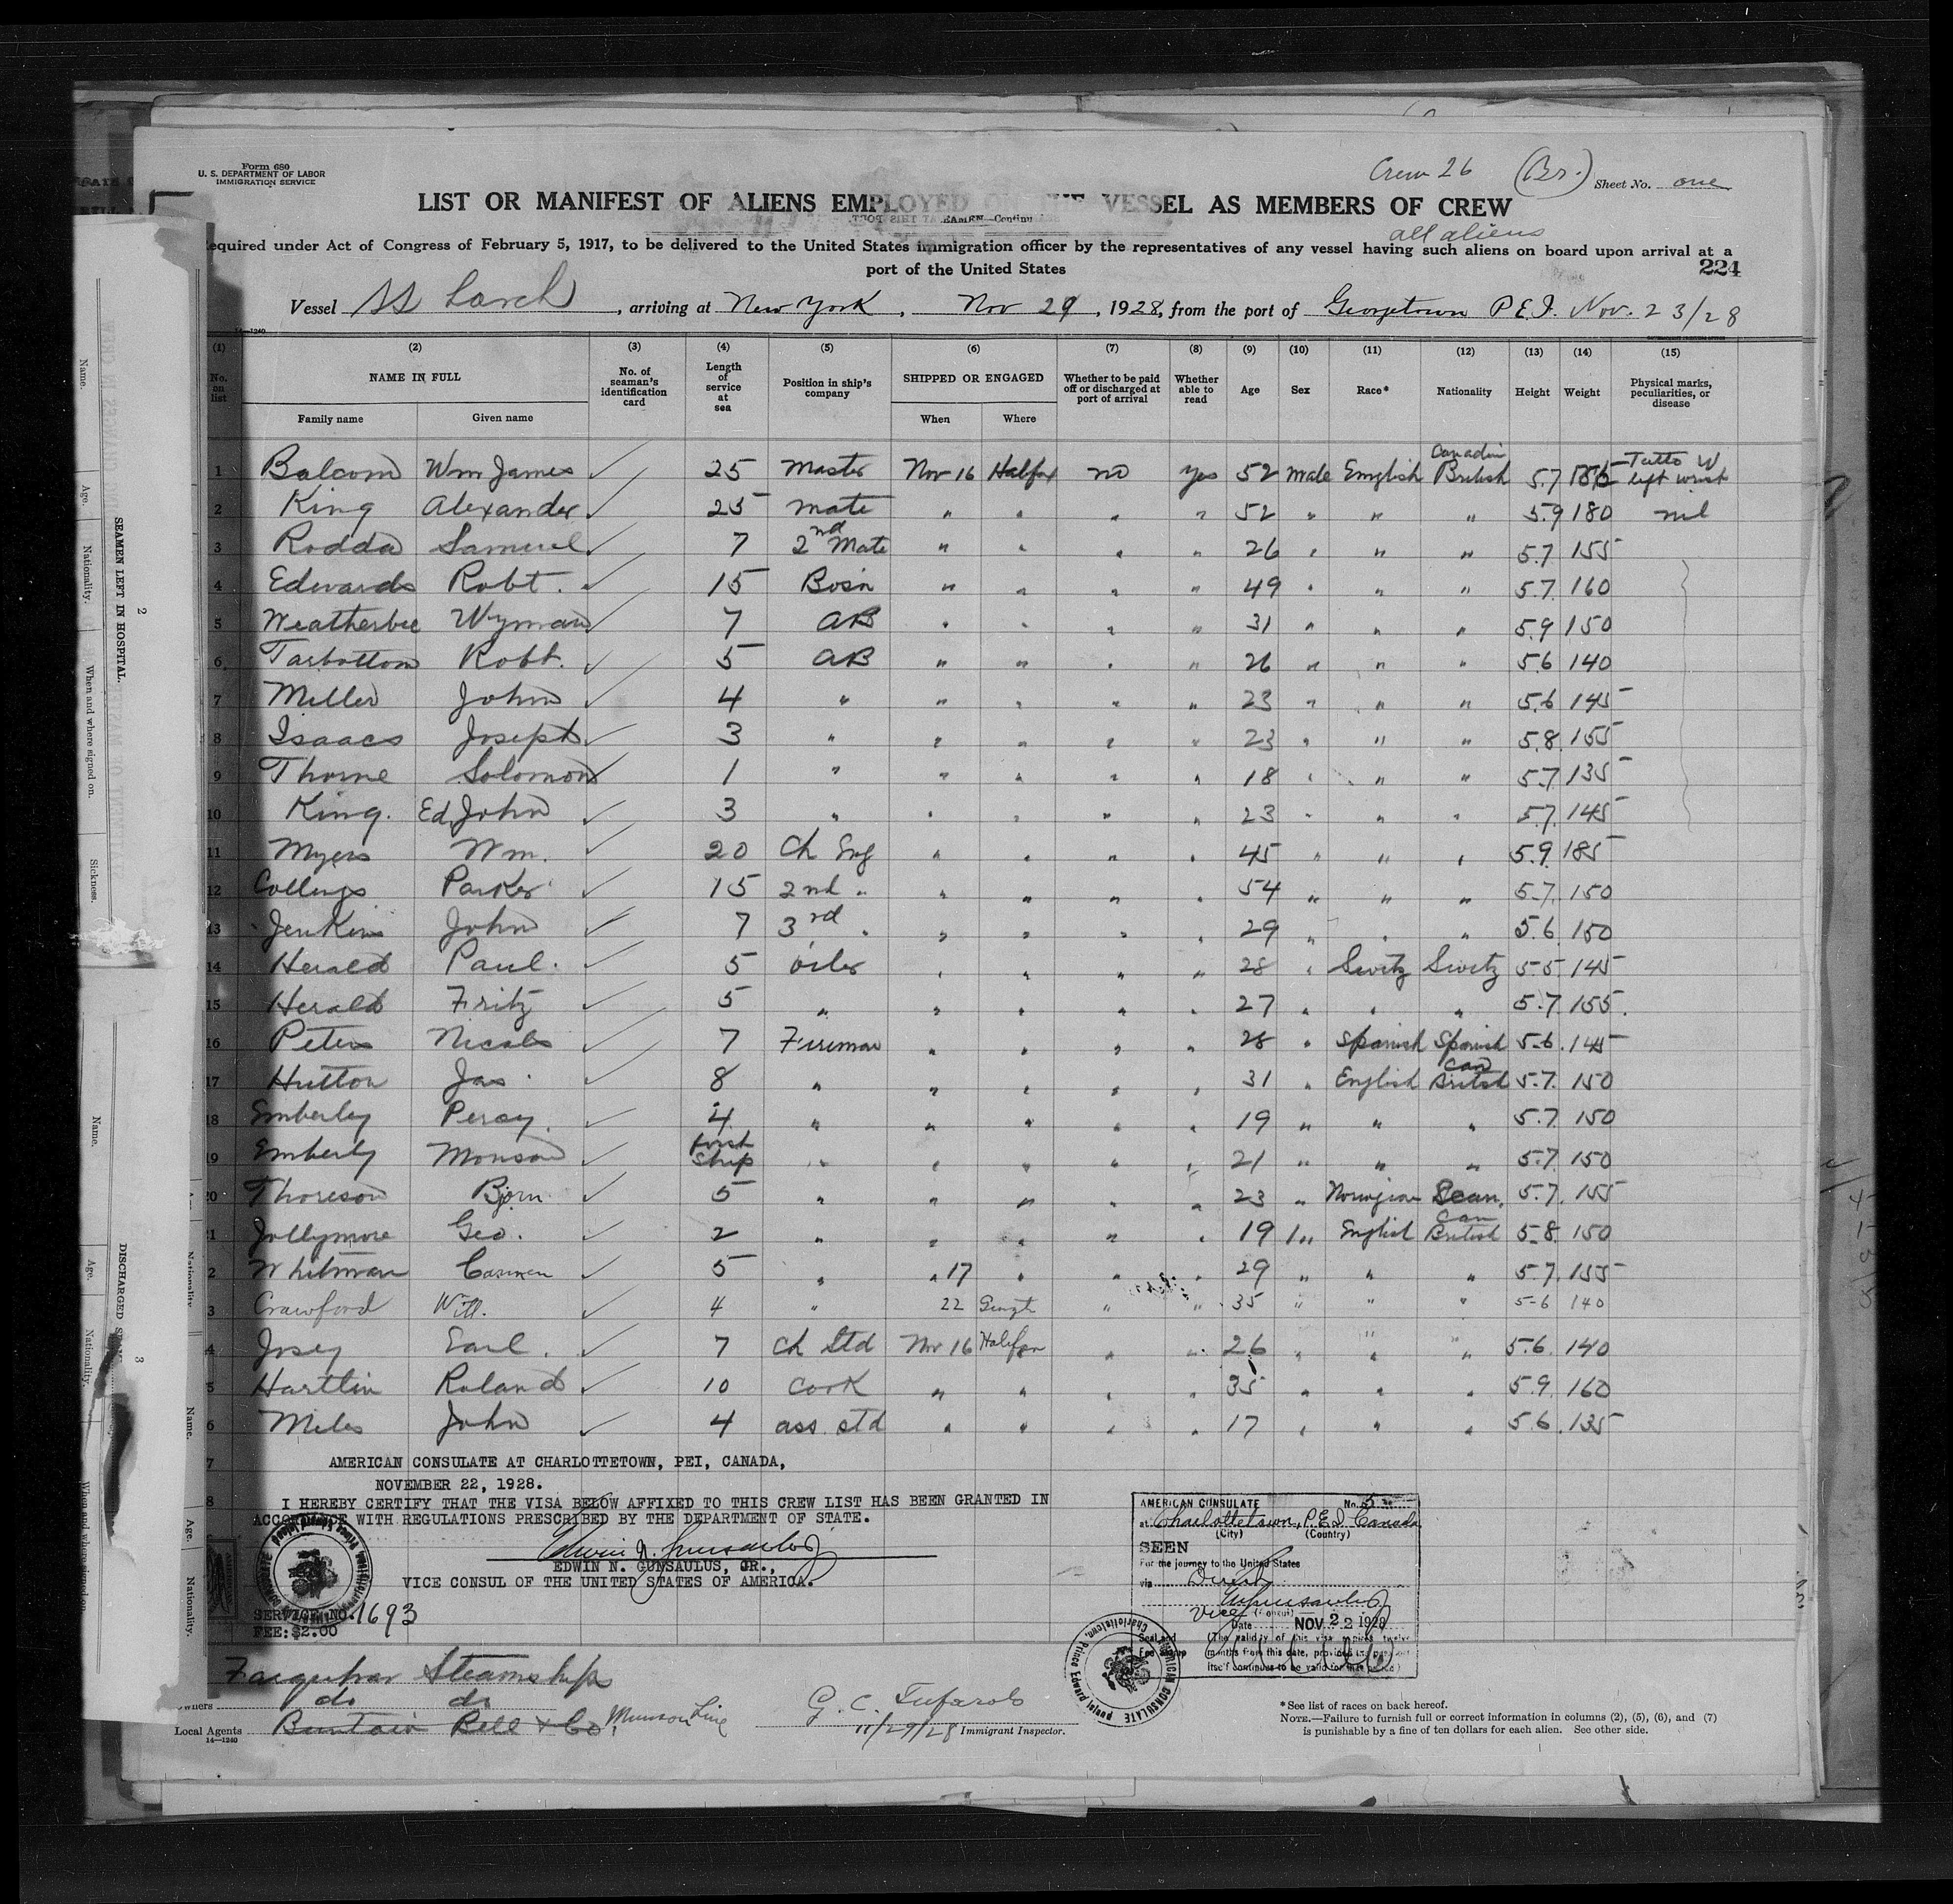 Form 680
U. S. DEPARTMENT OF LABOR
IMMIGRATION SERVICE
Crew 26 (Br.) Sheet No. one
LIST OR MANIFEST OF ALIENS EMPLOYED ON THE VESSEL AS MEMBERS OF CREW
all aliens
equired under Act of Congress of February 5, 1917, to be delivered to the United States immigration officer by the representatives of any vessel having such aliens on board upon arrival at a
port of the United States
224
Vessel SS Larch, arriving at New York, Nov 29, 1928, from the port of Georgetown P.E.I. Nov. 23/28
14-1240
(1) (2) (3) (4) (5) (6) (7) (8) (9) (10) (11) (12) (13) (14) (15)
No. on list NAME IN FULL Family name Given name No. of seaman's identification card Length of service at sea Position in ship's company SHIPPED OR ENGAGED When Where Whether to be paid off or discharged at port of arrival Whether able to read Age Sex Race* Nationality Height Weight Physical marks, peculiarities, or disease
1 Balcom Wm James 25 Master Nov 16 Halifax no yes 52 male English Canadian British 5.7 Tatto W left wrist
2 King Alexander 25 Mate " " " " 52 " " " 5.9 180 nil
3 Rodda Samuel 7 2nd Mate " " " " 26 " " " 5.7 155
4 Edwards Robt. 15 Bosn " " " " 49 " " " 5.7 160
5 Weatherbee Wyman 7 AB " " " " 31 " " " 5.9 150
6 Tarbottom Robt. 5 AB " " " " 26 " " " 5.6 140
7 Miller John 4 " " " " " 23 " " " 5.6 145
8 Isaacs Joseph 3 " " " " " 23 " " " 5.8 155
9 Thorne Solomon 1 " " " " " 18 " " " 5.7 135
10 King. Ed. John 3 " " " " " 23 " " " 5.7 145
11 Myers Wm. 20 Ch Eng " " " " 45 " " " 5.9 185
12 Collings Parker 15 2nd " " " " " 54 " " " 5.7 150
13 Jenkins John 7 3rd " " " " " 29 " " " 5.6 150
14 Herald Paul. 5 Oiler " " " " 28 " Switz Switz 5.5 145
15 Herald Fritz 5 " " " " " 27 " " " 5.7 155
16 Peters 7 Fireman " " " " 28 " Spanish Spanish 5.6 145
17 Hutton Jas. 8 " " " " " 31 " English Can British 5.7 150
18 Emberley Percy. 4 " " " " " 19 " " " 5.7 150
19 Emberly Monson first ship " " " " " 21 " " " 5.7 150
20 Thoreson Bjorn 5 " " " " " 23 " Norwegian Scan. 5.7 155
1 Jollymore Geo. 2 " " " " " 19 " English Can British 5.8 150
2 Whitman Carmen 5 " " 17 " " " 29 " " " 5.7 155
3 Crawford Will. 4 " 22 Geogt " " 35 " " " 5-6 140
4 Josey Earl. 7 Ch Std Nov 16 Halifax " " 26 " " " 5.6 140
5 Hartlin Roland 10 Cook " " " " 35 " " " 5.9 160
6 Miles John 4 ass. std " " " " 17 " " " 5.6 135
7 AMERICAN CONSULATE AT CHARLOTTETOWN, PEI, CANADA,
NOVEMBER 22, 1928.
8 I HEREBY CERTIFY THAT THE VISA BELOW AFFIXED TO THIS CREW LIST HAS BEEN GRANTED IN
ACCORDANCE WITH REGULATIONS PRESCRIBED BY THE DEPARTMENT OF STATE.
Edwin N. Gunsaulus Jr
EDWIN N. GUNSAULUS, JR.,
VICE CONSUL OF THE UNITED STATES OF AMERICA.
SERVICE NO. 1693
FEE: $2.00
AMERICAN CONSULATE No.
at Charlottetown, P.E.I. Canada
(City) (Country)
SEEN
For the journey to the United States
via Direct
Vice (Consul)
Date NOV 22 1928
(The validity of this visa expires twelve
months from this date, provided the passport
itself continues to be valid for that period)
AMERICAN CONSULATE Charlottetown, Prince Edward Island
Farquhar Steamships
Owners do do
Local Agents Buntain Bell & Co, Munson Line
14-1240
G. C. Tufarolo
11/29/28 Immigrant Inspector.
*See list of races on back hereof.
NOTE.—Failure to furnish full or correct information in columns (2), (5), (6), and (7)
is punishable by a fine of ten dollars for each alien. See other side.
SEAMEN LEFT IN HOSPITAL.
2
Name.
Age.
Nationality.
When and where signed on.
Sickness.
3
DISCHARGED
Name.
Age.
Nationality.
When and where signed on.
Name.
Age.
Nationality.